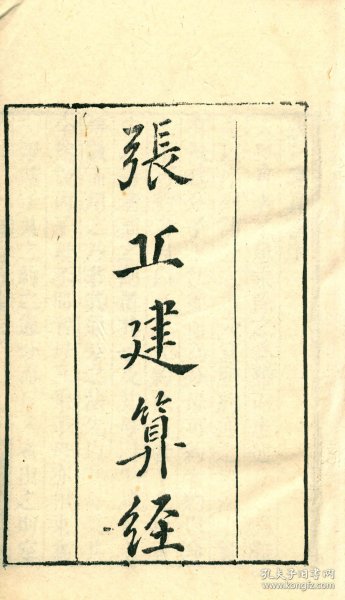 張丘建算經
孔夫子旧书网
www.kongfz.com